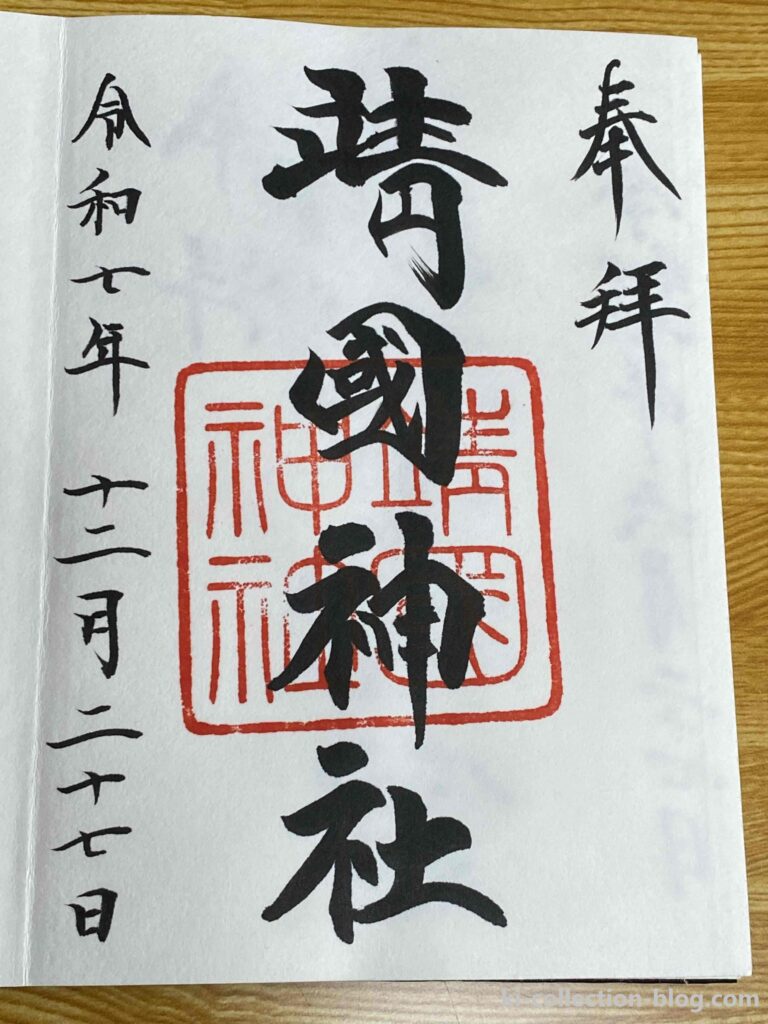 奉拝
靖國神社
靖国
神社
令和七年 十二月 二十七日
kt-collection-blog.com